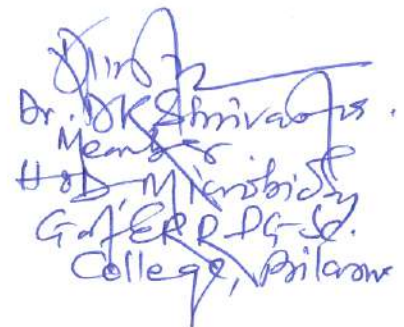 Dr. DK Shrivastva.
Member
HOD, Microbiology
Govt. E R R P G Sc.
College, Bilaspur